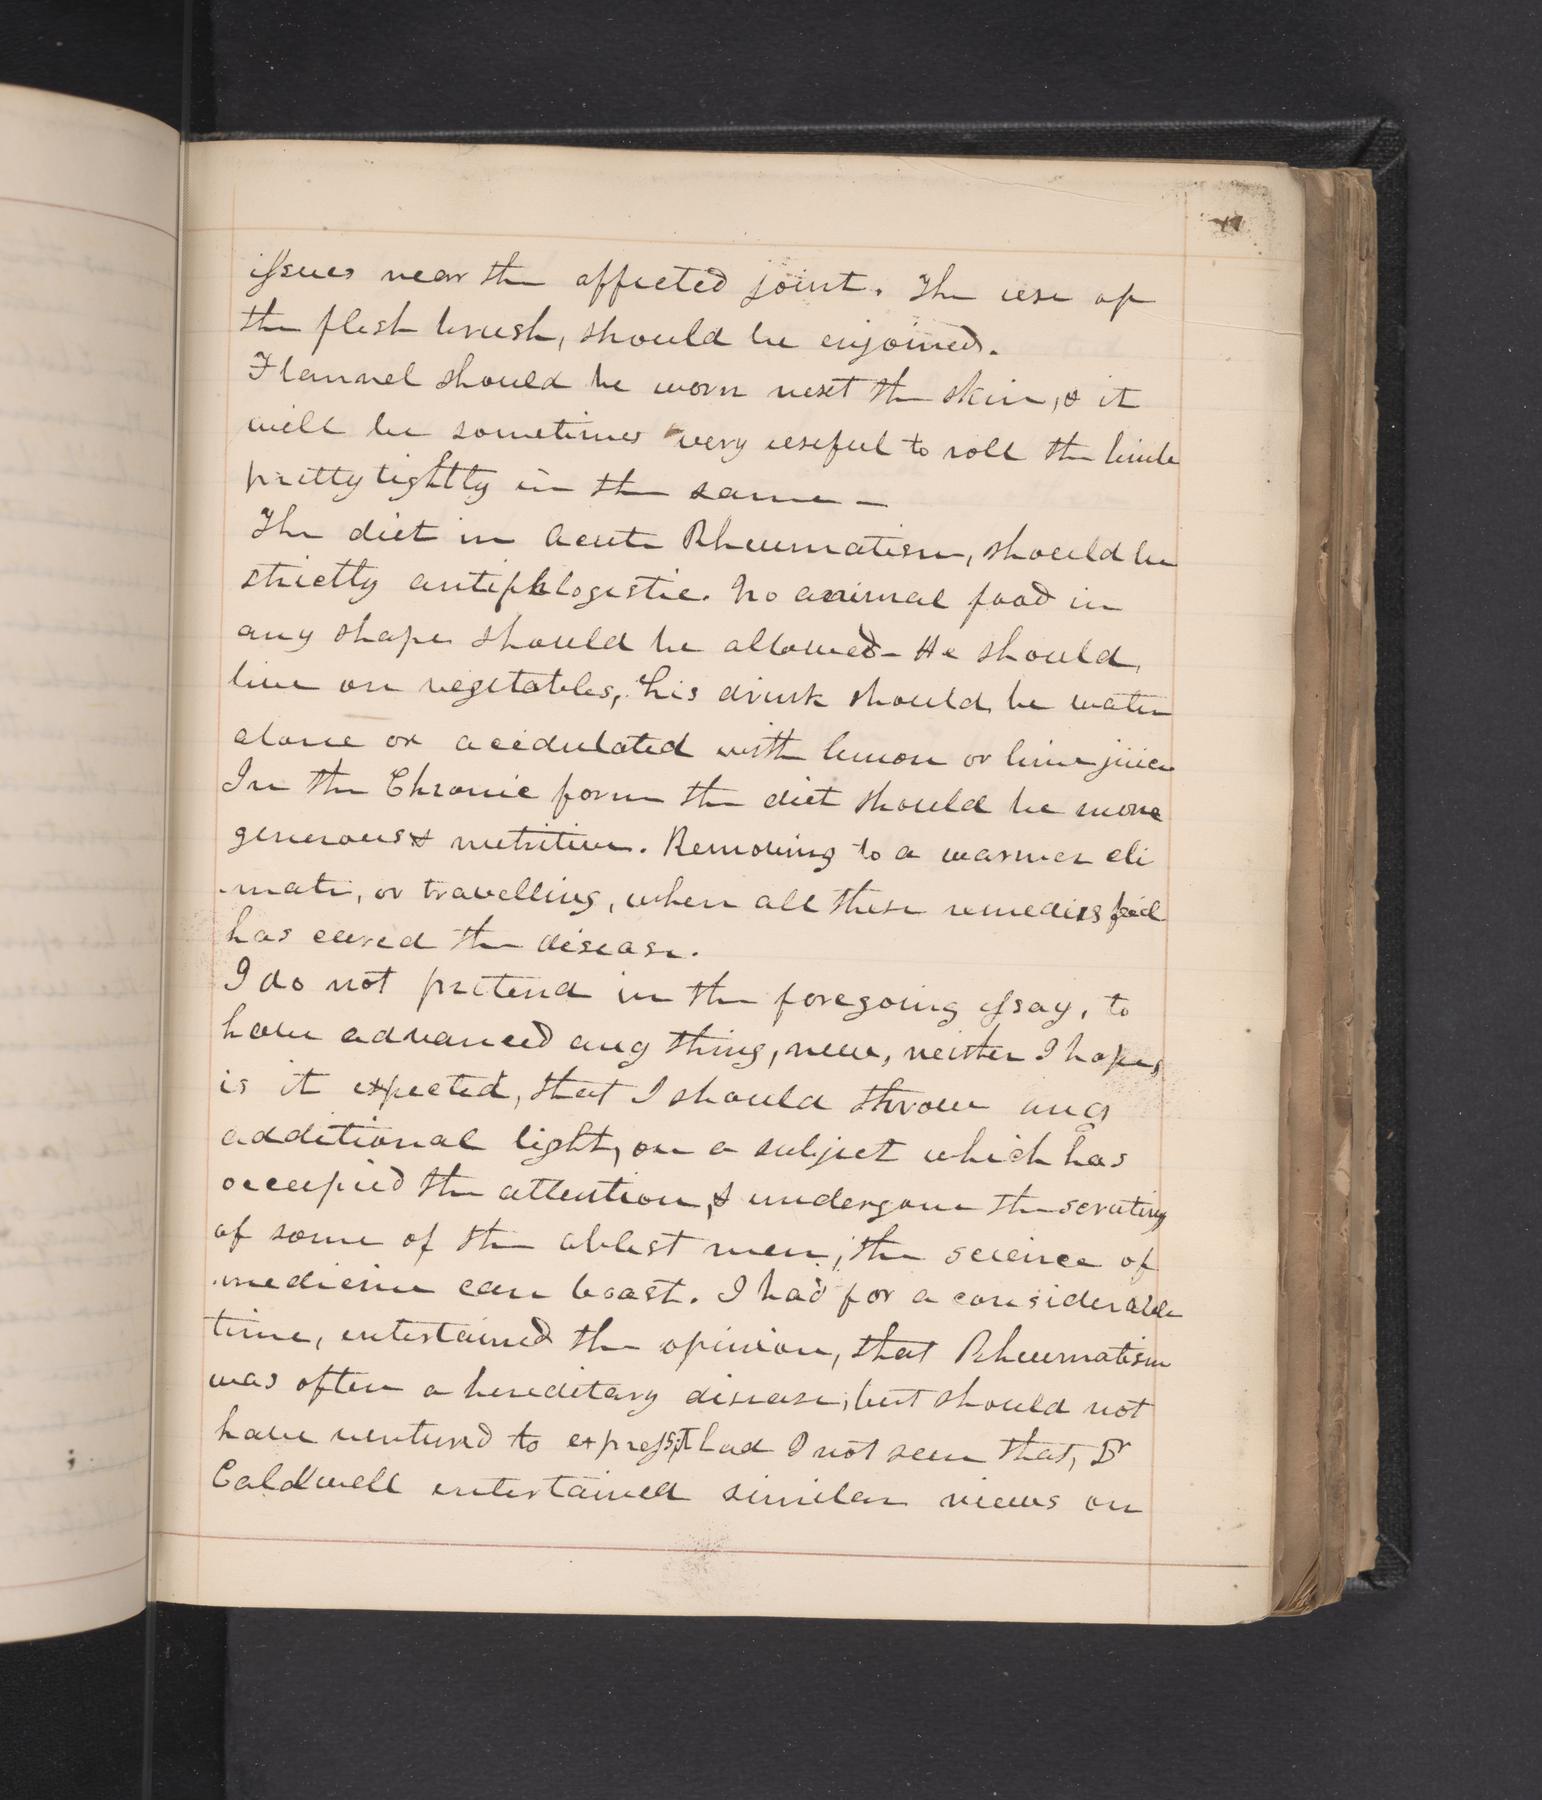 17
issues near the affected joint. The use of
the flesh brush, should be enjoined.
Flannel should be worn next the skin, & it
will be sometimes very useful to roll the limb
pretty tightly in the same —
The diet in Acute Rheumatism, should be
strictly antiphlogistic. No animal food in
any shape should be allowed – He should,
live on vegetables, his drink should be water
alone or acidulated with lemon or lime juice
In the Chronic form the diet should be more
generous & nutritive. Removing to a warmer cli
mate, or travelling, when all these remedies fail
has cured the disease.
I do not pretend in the foregoing essay, to
have advanced any thing, new, neither I hope,
is it expected, that I should throw any
additional light, on a subject which has
occupied the attention, & undergone the scrutiny
of some of the ablest men, the science of
medicine can boast. I had for a considerable
time, entertained the opinion, that Rheumatism
was often a hereditary disease, but should not
have ventured to express it had I not seen that, Dr
Caldwell entertained similar views on